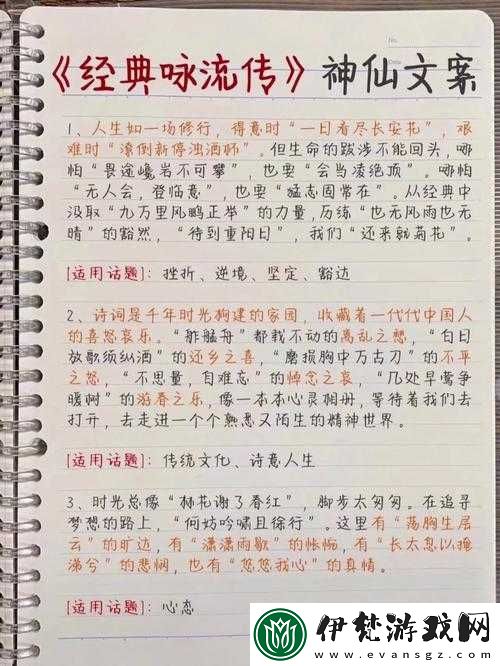 No.
Date
《经典咏流传》神仙文案
1、人生如一场修行，得意时“一日看尽长安花”，艰
难时“潦倒新停浊酒杯”。但生命的跋涉不能回头，哪
怕“畏途巉岩不可攀”，也要“会当凌绝顶”。哪怕
“无人会，登临意”，也要“猛志固常在”。从经典中
汲取“九万里风鹏正举”的力量，历练“也无风雨也无
晴”的豁然，“待到重阳日”，我们“还来就菊花”。
[适用话题]：挫折、逆境、坚定、豁达
2、诗词是千年时光构建的家园，收藏着一代代中国人
的喜怒哀乐。“舴艋舟”都载不动的离乱之愁，“白日
放歌须纵酒”的还乡之喜，“磨损胸中万古刀”的不平
之怒，“不思量，自难忘”的悼念之哀，“几处早莺争
暖树”的游春之乐，像一本本心灵相册，等待着我们去
打开，去走进一个个熟悉又陌生的精神世界。
[适用话题]：传统文化、诗意人生
3、时光总像“林花谢了春红”，脚步太匆匆。在追寻
梦想的路上，“何妨吟啸且徐行”。这里有“荡胸生层
云”的旷达，有“潇潇雨歇”的怅惘，有“长太息以掩
涕兮”的悲悯，也有“悠悠我心”的真情。
[适用话题]：心态
伊梵游戏网
www.evansgz.com